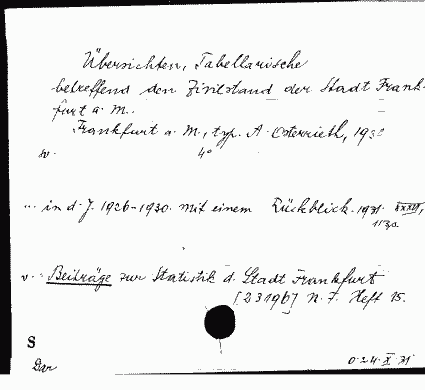 Übersichten, Tabellarische
betreffend den Zivilstand der Stadt Frank-
furt a. M..
Frankfurt a. M., typ. A. Osterrieth, 19
4°
... in d. J. 1926-1930. Mit einem Rückblick. 1931. XXXVI,
113 S.
v. Beiträge zur Statistik d. Stadt Frankfurt
[2319b] N. F. Heft 15.
S
Dar
0.24.X.31